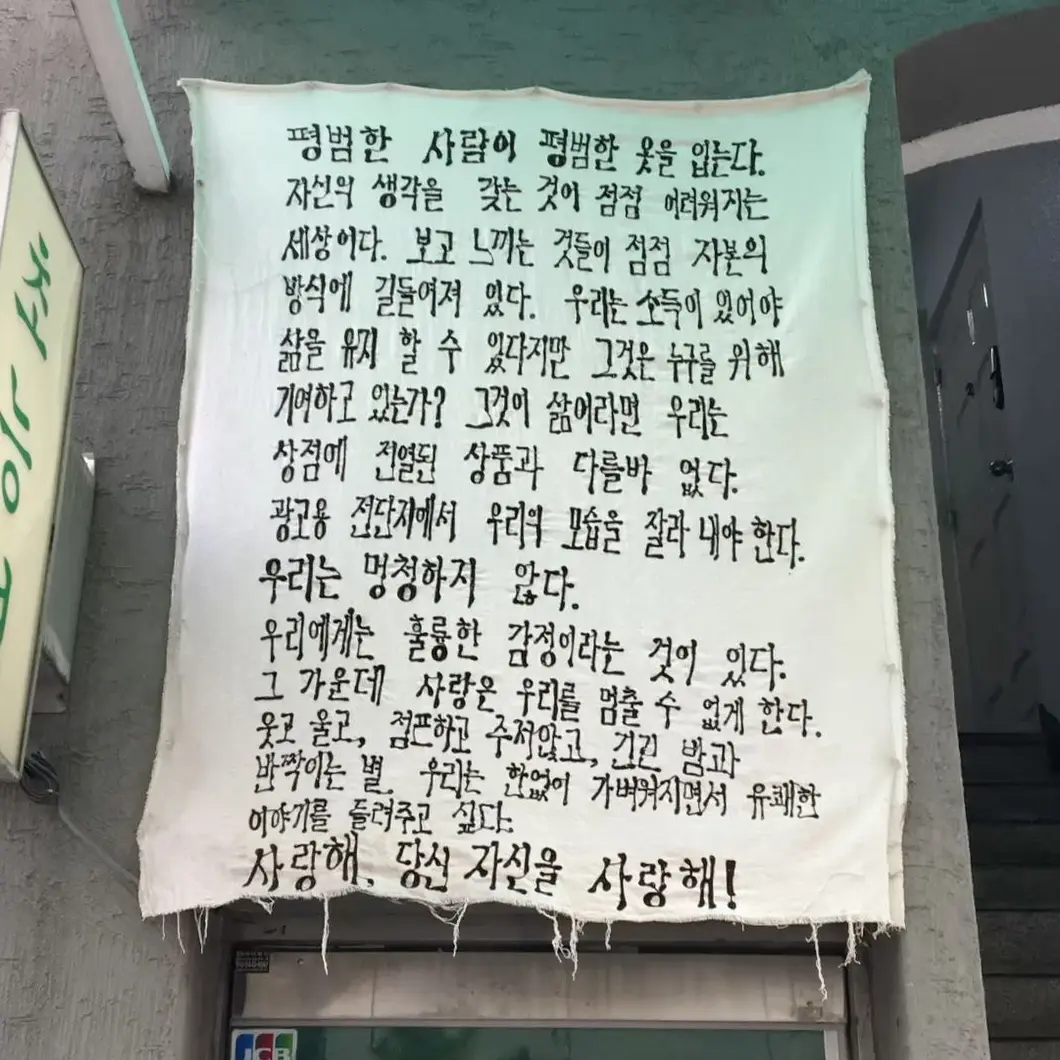 평범한 사람이 평범한 옷을 입는다.
자신의 생각을 갖는 것이 점점 어려워지는
세상이다. 보고 느끼는 것들이 점점 자본의
방식에 길들여져 있다. 우리는 소득이 있어야
삶을 유지 할 수 있다지만 그것은 누구를 위해
기여하고 있는가? 그것이 삶이라면 우리는
상점에 진열된 상품과 다를바 없다.
광고용 전단지에서 우리의 모습을 잘라 내야 한다.
우리는 멍청하지 않다.
우리에게는 훌륭한 감정이라는 것이 있다.
그 가운데 사랑은 우리를 멈출 수 없게 한다.
웃고 울고, 점프하고 주저앉고, 긴긴 밤과
반짝이는 별. 우리는 한없이 가벼워지면서 유쾌한
이야기를 들려주고 싶다.
사랑해, 당신 자신을 사랑해!
JCB